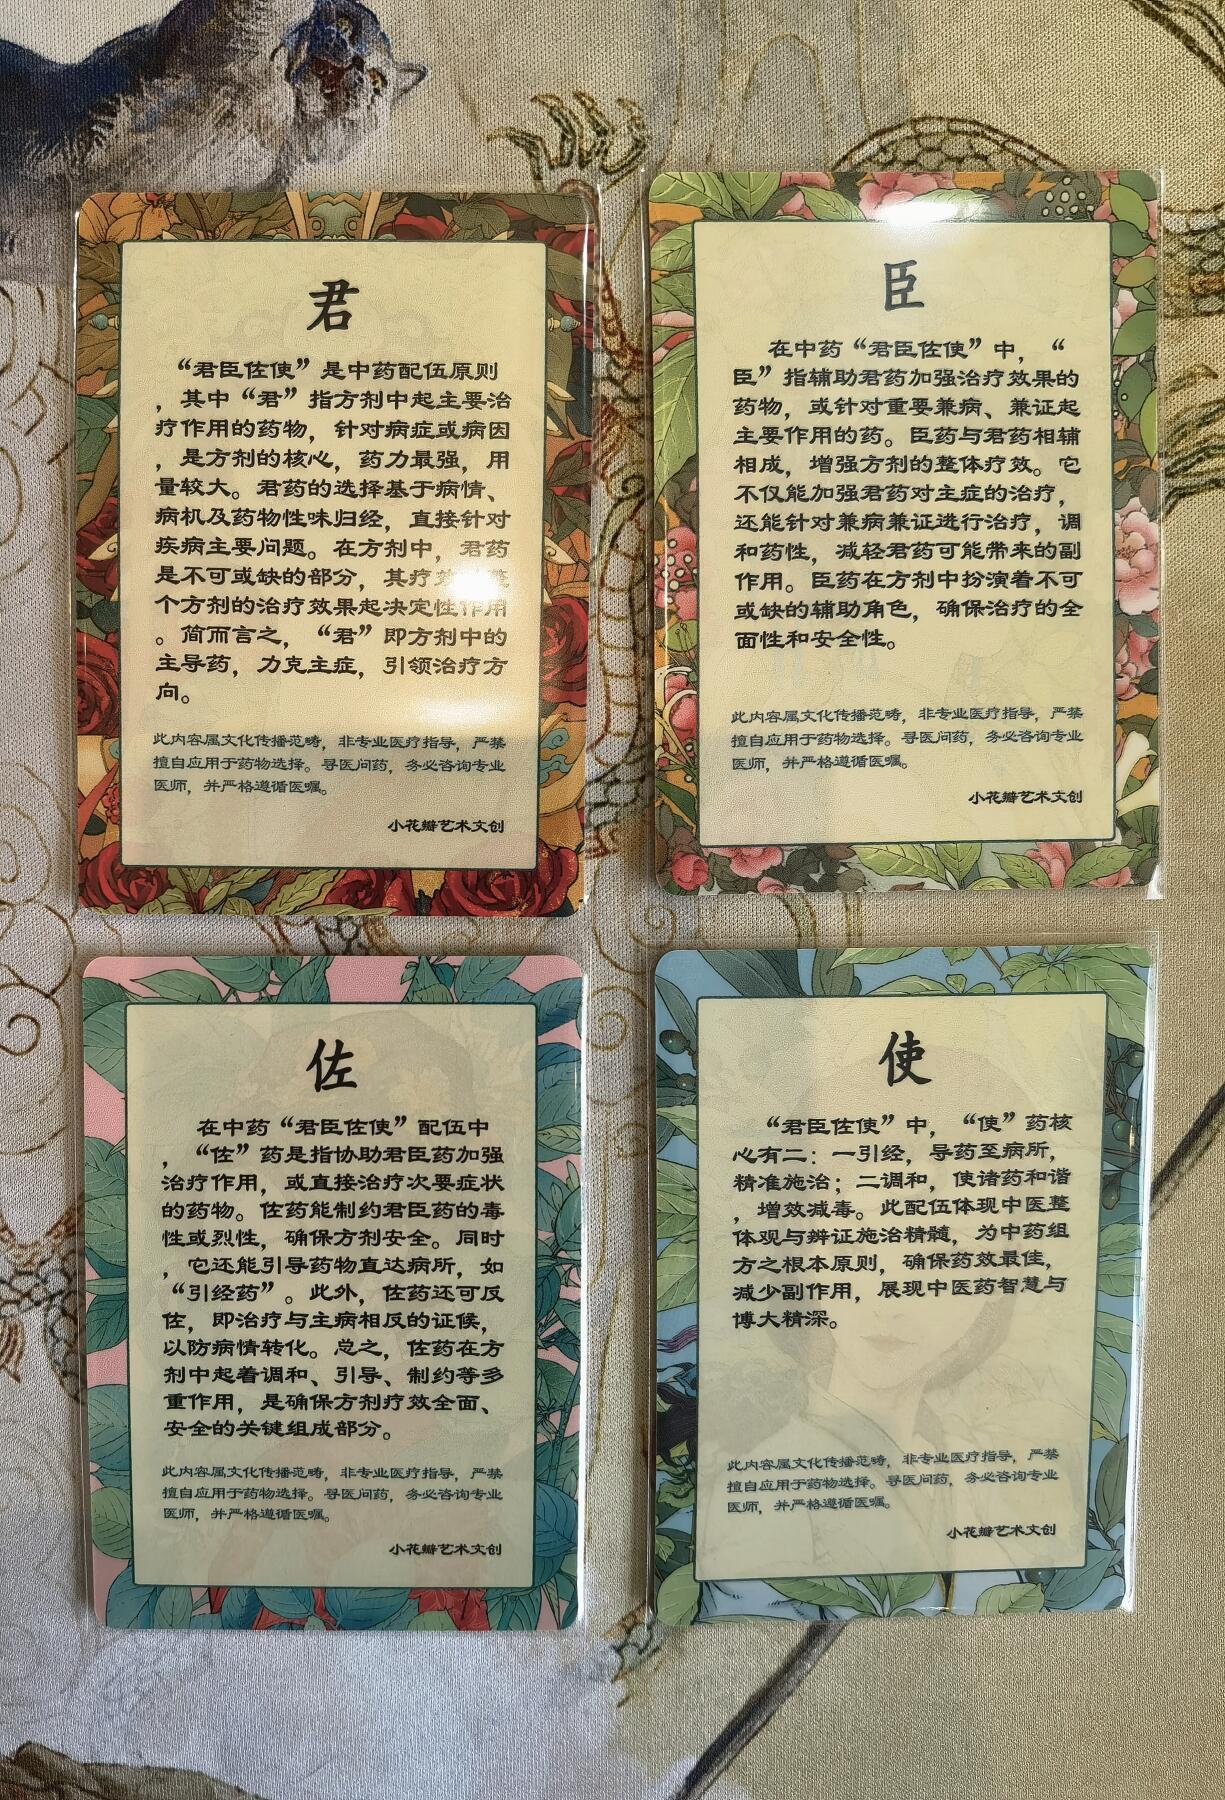 君
“君臣佐使”是中药配伍原则
，其中“君”指方剂中起主要治
疗作用的药物，针对病症或病因
，是方剂的核心，药力最强，用
量较大。君药的选择基于病情、
病机及药物性味归经，直接针对
疾病主要问题。在方剂中，君药
是不可或缺的部分，其疗
个方剂的治疗效果起决定性作用
。简而言之，“君”即方剂中的
主导药，力克主症，引领治疗方
向。
此内容属文化传播范畴，非专业医疗指导，严禁
擅自应用于药物选择。寻医问药，务必咨询专业
医师，并严格遵循医嘱。
小花瓣艺术文创
臣
在中药“君臣佐使”中，“
臣”指辅助君药加强治疗效果的
药物，或针对重要兼病、兼证起
主要作用的药。臣药与君药相辅
相成，增强方剂的整体疗效。它
不仅能加强君药对主症的治疗，
还能针对兼病兼证进行治疗，调
和药性，减轻君药可能带来的副
作用。臣药在方剂中扮演着不可
或缺的辅助角色，确保治疗的全
面性和安全性。
此内容属文化传播范畴，非专业医疗指导，严禁
擅自应用于药物选择。寻医问药，务必咨询专业
医师，并严格遵循医嘱。
小花瓣艺术文创
佐
在中药“君臣佐使”配伍中
，“佐”药是指协助君臣药加强
治疗作用，或直接治疗次要症状
的药物。佐药能制约君臣药的毒
性或烈性，确保方剂安全。同时
，它还能引导药物直达病所，如
“引经药”。此外，佐药还可反
佐，即治疗与主病相反的证候，
以防病情转化。总之，佐药在方
剂中起着调和、引导、制约等多
重作用，是确保方剂疗效全面、
安全的关键组成部分。
此内容属文化传播范畴，非专业医疗指导，严禁
擅自应用于药物选择。寻医问药，务必咨询专业
医师，并严格遵循医嘱。
小花瓣艺术文创
使
“君臣佐使”中，“使”药核
心有二：一引经，导药至病所，
精准施治；二调和，使诸药和谐
，增效减毒。此配伍体现中医整
体观与辨证施治精髓，为中药组
方之根本原则，确保药效最佳，
减少副作用，展现中医药智慧与
博大精深。
此内容属文化传播范畴，非专业医疗指导，严禁
擅自应用于药物选择。寻医问药，务必咨询专业
医师，并严格遵循医嘱。
小花瓣艺术文创